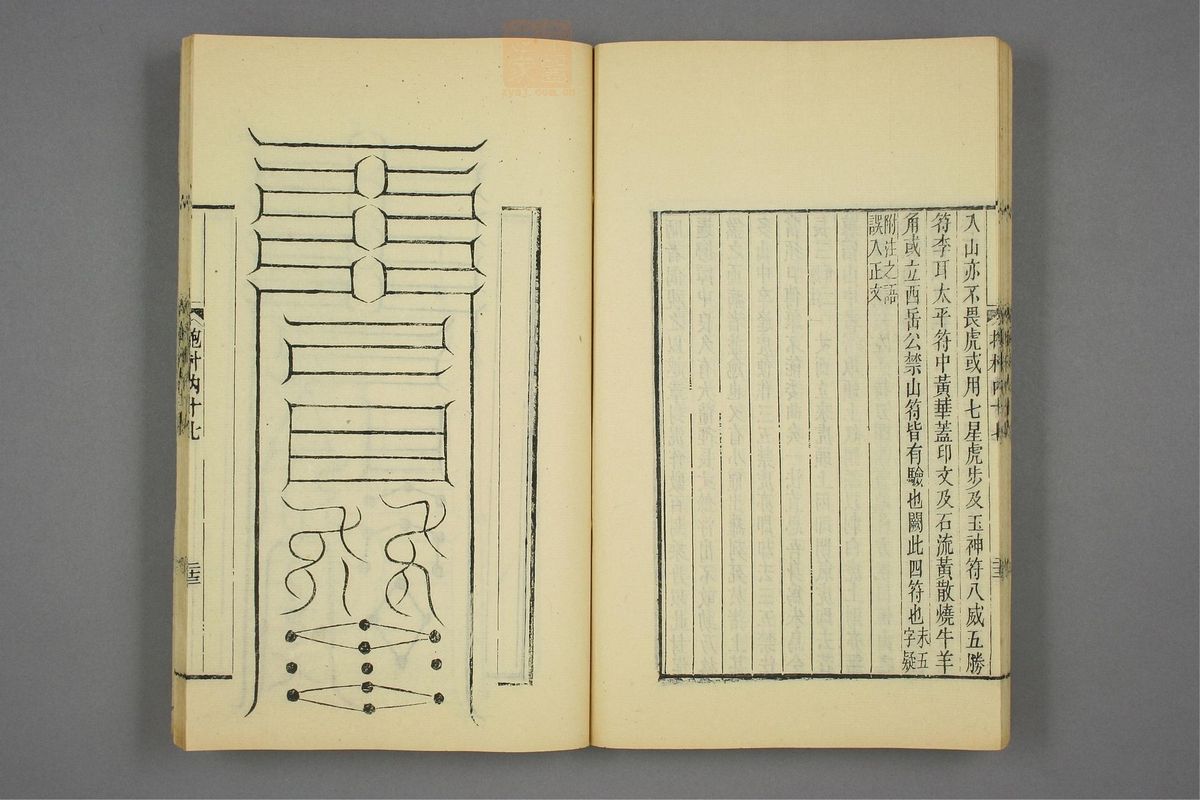 入山亦不畏虎或用七星虎步及玉神符八威五勝
符李耳太平符中黃華蓋印文及石流黃散燒牛羊
角或立西岳公禁山符皆有驗也闕此四符也末五
字疑
附注之語
誤入正文
抱朴內十七
二十三